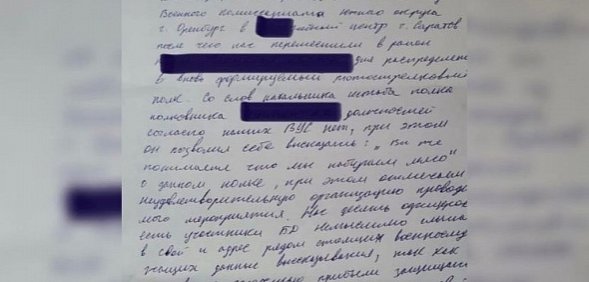 Военного комиссариата южного округа
г. Оренбург в центр г. Саратов
после чего нас переместили в район
для распределет
в вновь формируемый мотострелковый
полк. Со слов начальника штаба полка
полковника должностей
согласно наших ВУС нет, при этом
он позволил себе высказать: "Вы же
понимаете что мы набираем мясо"
в данном полке, при этом отмечаем
неудовлетворительную организацию проводи
мого мероприятия. Нас десять офицеров
есть участники БД немыслимо слыша
в свой и адрес рядом стоящих военнослу
жащих данные высказывания, так как
прибыли защищать